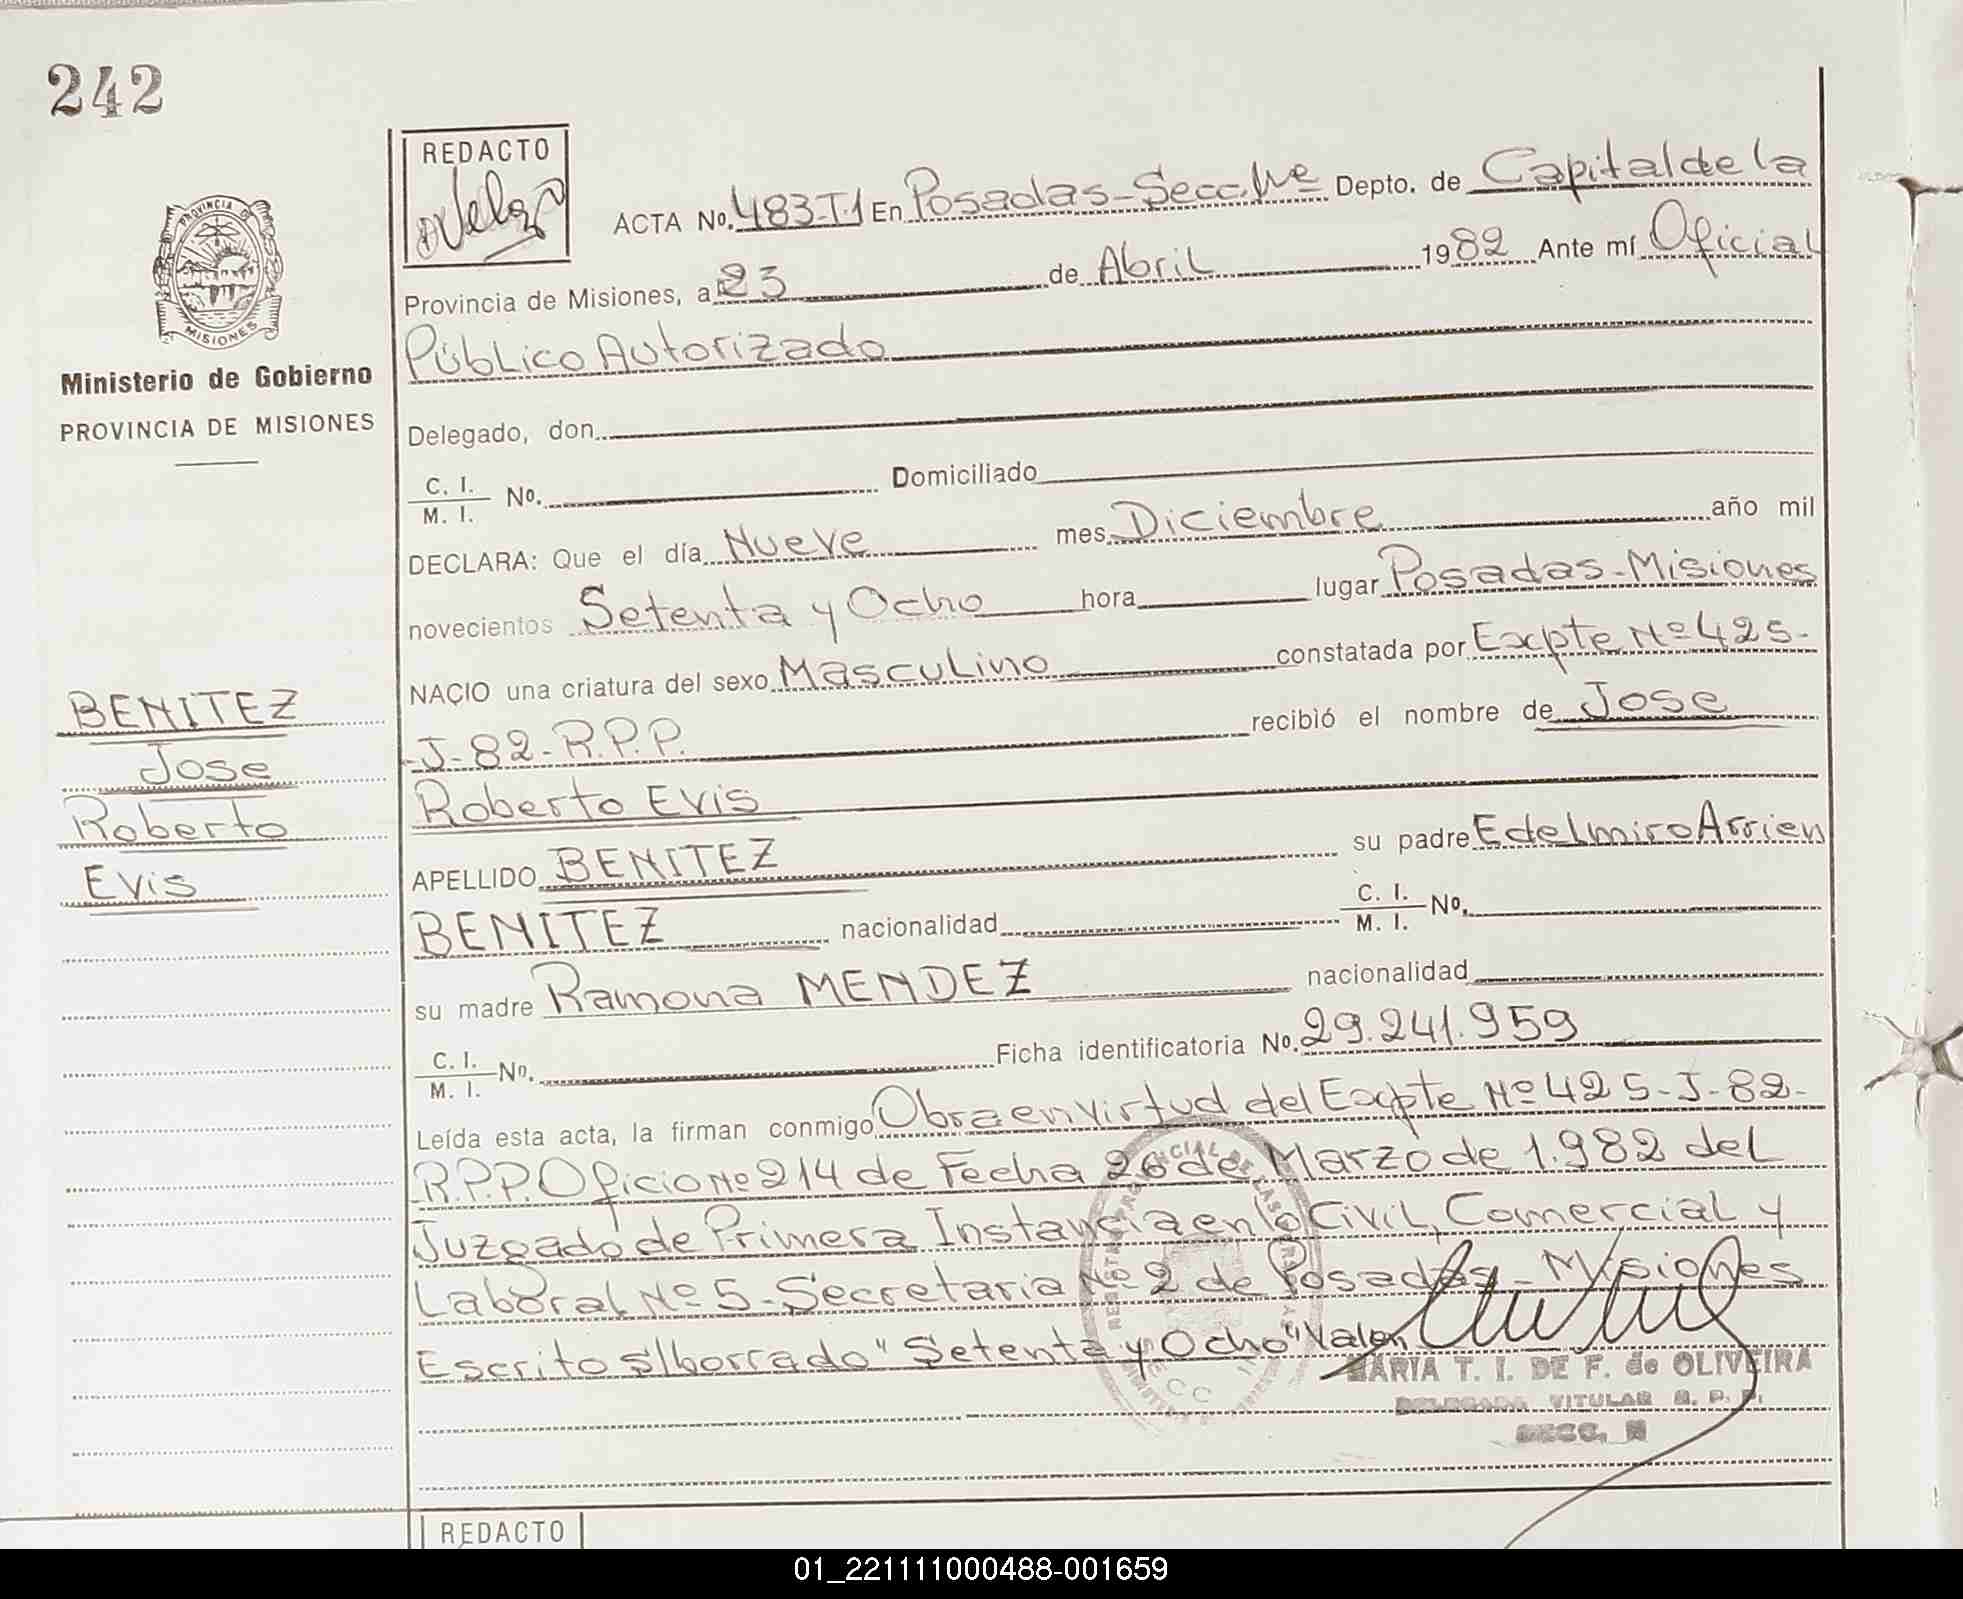 242
REDACTO
ACTA No. 483-T1 En Posadas-Secc. Depto. de Capital de la
Provincia de Misiones, a 23 de Abril 1982 Ante mí Oficial
Público Autorizado
PROVINCIA DE
MISIONES
Ministerio de Gobierno
PROVINCIA DE MISIONES
Delegado, don
C. I.
M. I. No. Domiciliado
DECLARA: Que el día Nueve mes Diciembre año mil
novecientos Setenta y Ocho hora lugar Posadas-Misiones
NACIO una criatura del sexo Masculino constatada por Expte Nº 425-
-J-82-R.P.P. recibió el nombre de Jose
Roberto Evis
BENITEZ
Jose
Roberto
Evis
APELLIDO BENITEZ su padre Edelmiro Arrien
BENITEZ nacionalidad C. I.
M. I. No.
su madre Ramona MENDEZ nacionalidad
C. I.
M. I. No. Ficha identificatoria No. 29.241.959
Leída esta acta, la firman conmigo Obra en virtud del Expte Nº 425-J-82-
R.P.P. Oficio Nº 214 de Fecha 26 de Marzo de 1.982 del
Juzgado de Primera Instancia en lo Civil, Comercial y
Laboral Nº 5-Secretaria Nº 2 de Posadas-Misiones
Escrito s/borrado "Setenta y Ocho" Valen
MARIA T. I. DE F. de OLIVEIRA
DELEGADA TITULAR R. P. P.
SECC. N
REDACTO
01_221111000488-001659